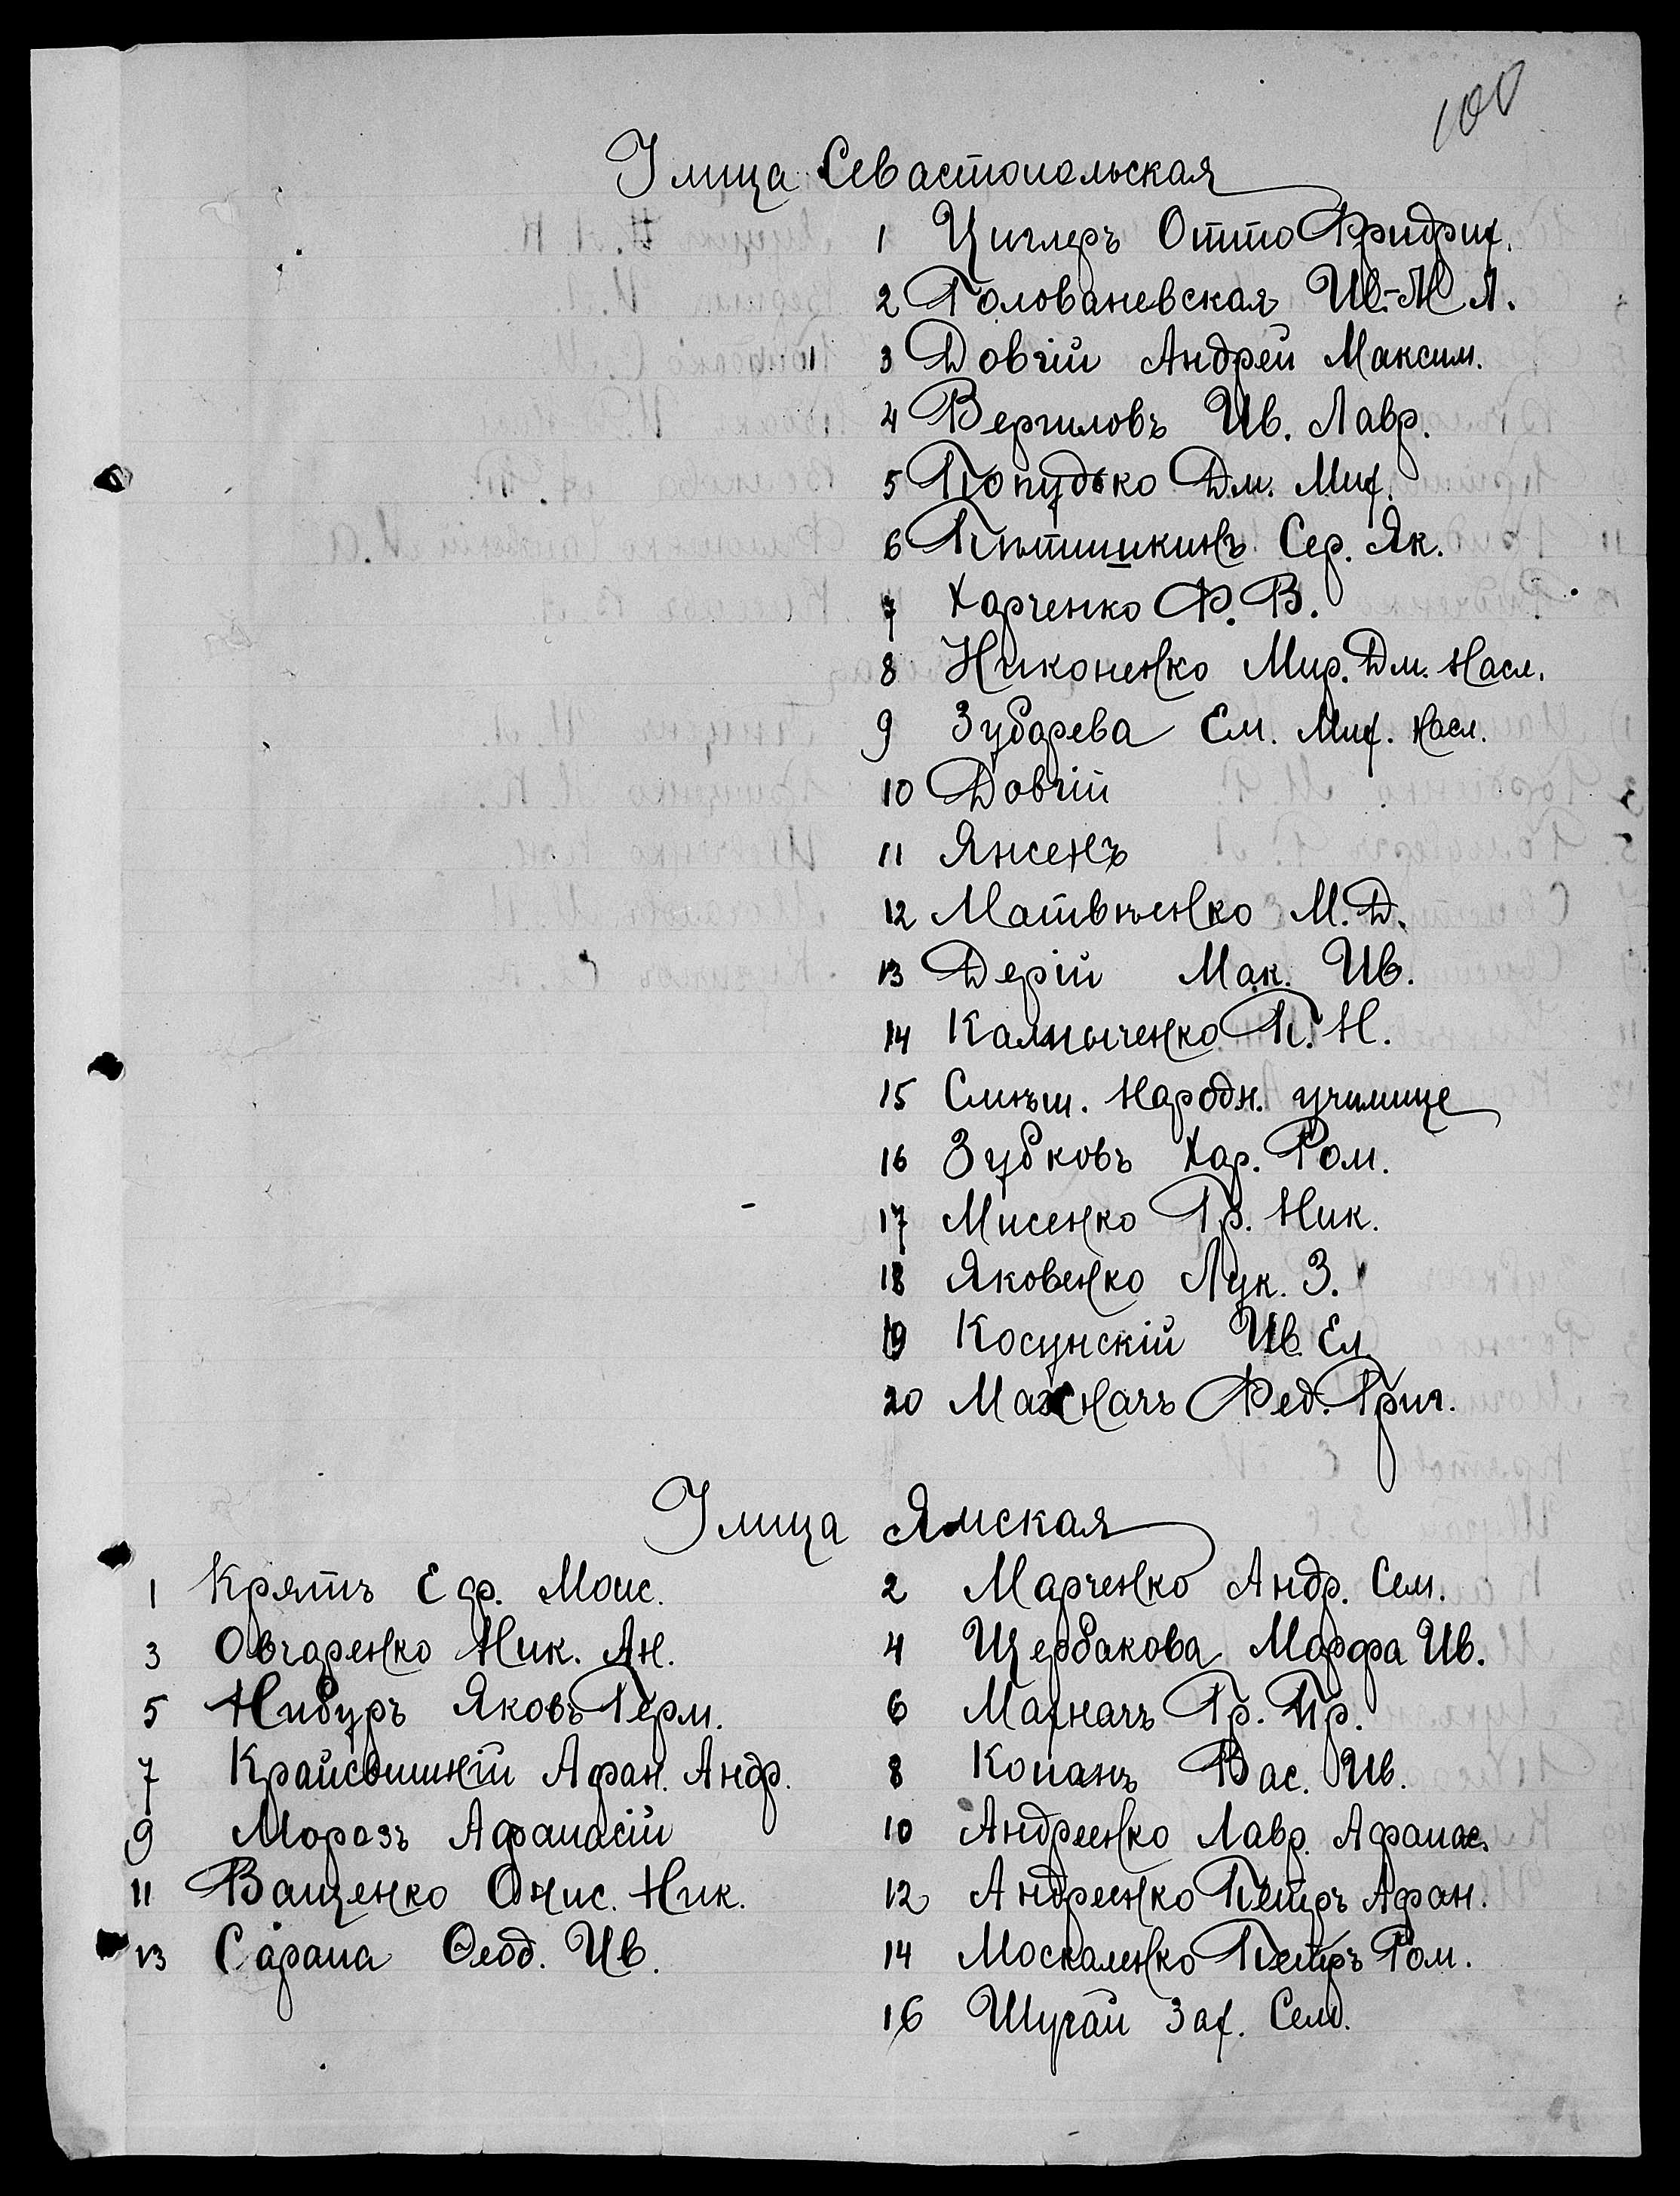 100
Улица Севастопольская
1 Циглеръ Отто Фридрих.
2 Голованевская Ив.-М Л.
3 Довгій Андрей Максим.
4 Вергиловъ Ив. Лавр.
5 Попудько Дм. Мих.
6 Пѣтишкинъ Сер. Як.
7 Харченко Ф. В.
8 Никоненко Мир. Дм. Насл.
9 Зубарева Ем. Мих. Насл.
10 Довгій
11 Янсенъ
12 Матвѣенко М. Д.
13 Дерій Мак. Ив.
14 Калныченко П. Н.
15 Смѣш. Народн. училище
16 Зубковъ Хар. Ром.
17 Мисенко Гр. Ник.
18 Яковенко Лук. З.
19 Косунскій Ив. Ел.
20 Махначъ Фед. Григ.
Улица Ямская
1 Крятъ Еф. Моис. 2 Марченко Андр. Сем.
3 Овчаренко Ник. Ан. 4 Щербакова Марфа Ив.
5 Нибуръ Яковъ Герм. 6 Махначъ Гр. Гр.
7 Крайсвишній Афан. Андр. 8 Копанъ Вас. Ив.
9 Морозъ Афанасій 10 Андреенко Лавр. Афанас.
11 Ващенко Онис. Ник. 12 Андреенко Петръ Афан.
13 Сарана Ѳеод. Ив. 14 Москаленко Петръ Ром.
16 Шугай Зах. Сем.